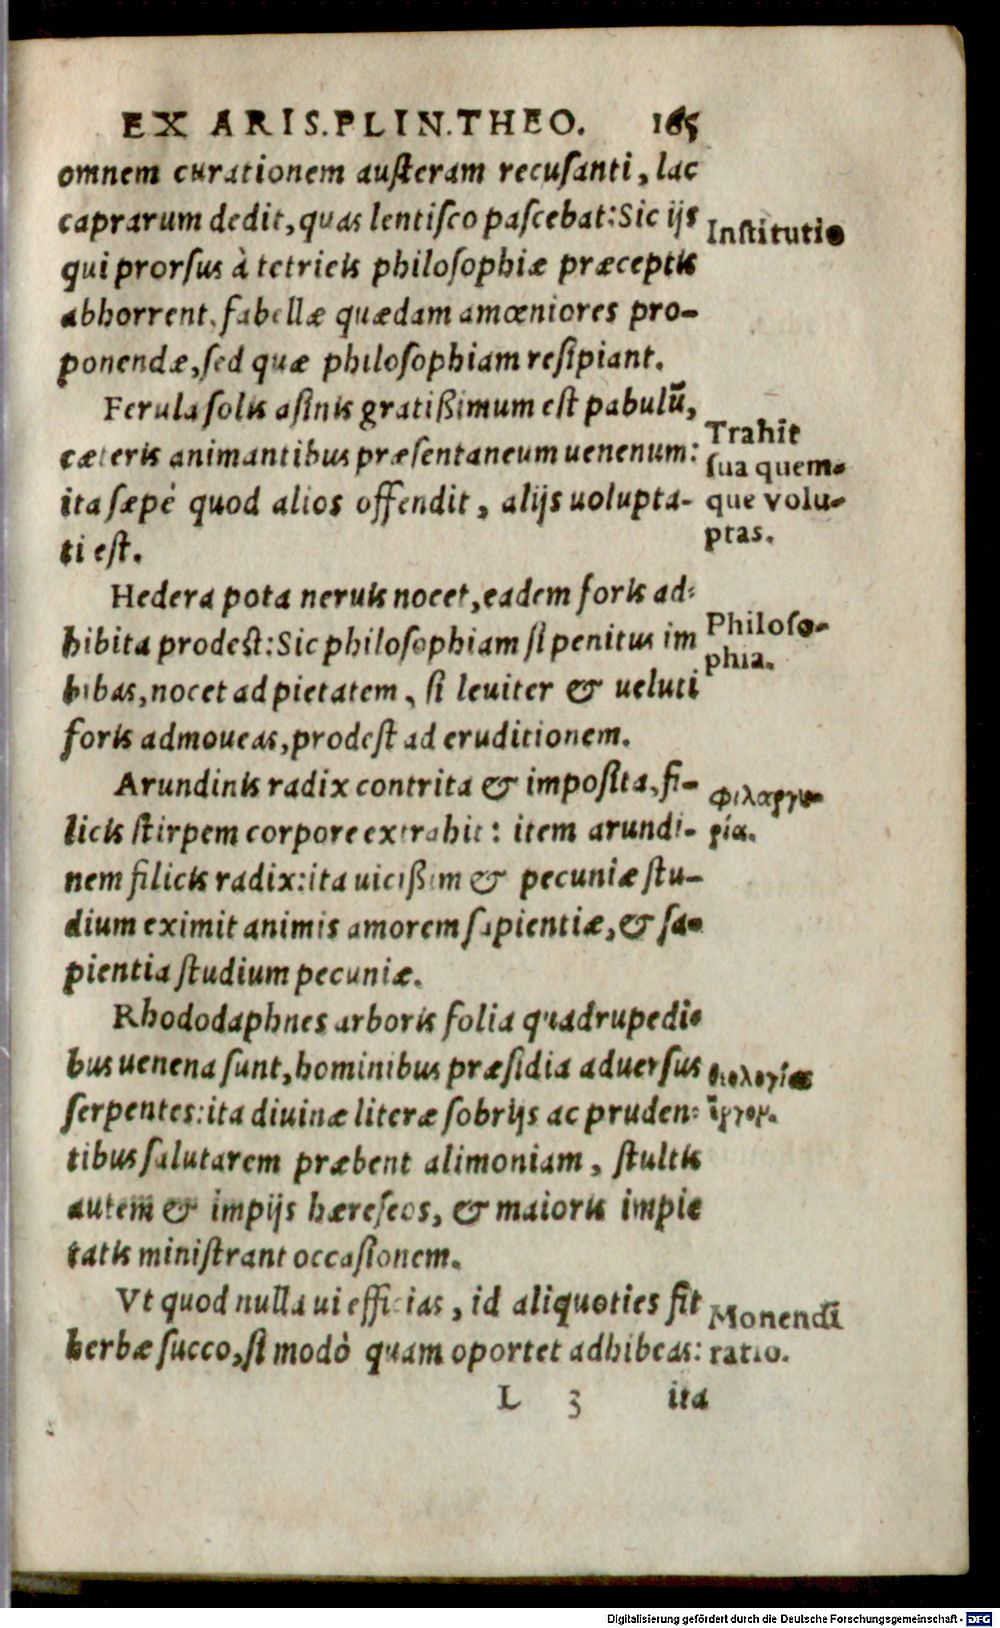 EX ARIS.PLIN.THEO. 165
omnem curationem austeram recusanti, lac
caprarum dedit, quas lentisco pascebat: Sic ijs
Institutio
qui prorsus à tetricis philosophiæ præceptis
abhorrent, fabellæ quædam amœniores pro-
ponendæ, sed quæ philosophiam resipiant.
Ferula solis asinis gratißimum est pabulū,
Trahit
cæteris animantibus præsentaneum uenenum:
sua quem-
ita sæpè quod alios offendit, alijs uolupta-
que volu-
ti est.
ptas.
Hedera pota neruis nocet, eadem foris ad-
hibita prodest: Sic philosophiam si penitus im
Philoso-
phia.
bibas, nocet ad pietatem, si leuiter & ueluti
foris admoueas, prodest ad eruditionem.
Arundinis radix contrita & imposita, fi-
φιλαργυ-
licis stirpem corpore extrahit: item arundi-
ρία.
nem filicis radix: ita uicißim & pecuniæ stu-
dium eximit animis amorem sapientiæ, & sa-
pientia studium pecuniæ.
Rhododaphnes arboris folia quadrupedi-
bus uenena sunt, hominibus præsidia aduersus
serpentes: ita diuinæ literæ sobrijs ac pruden-
tibus salutarem præbent alimoniam, stultis
autem & impijs hæreseos, & maioris impie
tatis ministrant occasionem.
Vt quod nulla ui efficias, id aliquoties fit
Monendi
herbæ succo, si modò quam oportet adhibeas:
ratio.
L 3 ita
Digitalisierung gefördert durch die Deutsche Forschungsgemeinschaft - DFG